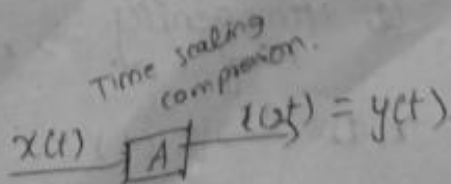 Time scaling
compression.
x(t) A x(2t) = y(t)